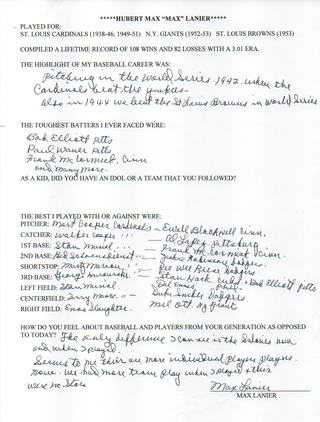 *****HUBERT MAX “MAX” LANIER*****
PLAYED FOR:
ST. LOUIS CARDINALS (1938-46, 1949-51) N.Y. GIANTS (1952-53) ST. LOUIS BROWNS (1953)
COMPILED A LIFETIME RECORD OF 108 WINS AND 82 LOSSES WITH A 3.01 ERA.
THE HIGHLIGHT OF MY BASEBALL CAREER WAS:
Pitching in the World Series 1942. when the
Cardinals beat the yankees-
also in 1944 we beat the St Louis Browns in World Series
THE TOUGHEST BATTERS I EVER FACED WERE:
Bob Elliott Pitts
Paul Waner Pitts
Frank McCormick, Cinn
and many more.
AS A KID, DID YOU HAVE AN IDOL OR A TEAM THAT YOU FOLLOWED?
THE BEST I PLAYED WITH OR AGAINST WERE:
PITCHER: Mort Cooper Cardinals - Ewell Blackwell Cinn.
CATCHER: Walker Cooper - Al Lopez Pittsburg
1ST BASE: Stan Musial - Frank McCormick Cinn.
2ND BASE: Red Schoendienst - Jackie Robinson Dodgers
SHORTSTOP: Marty Marion - Pee Wee Reese Dodgers
3RD BASE: George Kurowski - Stan Hack Cubs + Bob Elliott Pitts
LEFT FIELD: Stan Musial Del Ennis Phil
CENTERFIELD: Terry Moore - Duke Snider Dodgers
RIGHT FIELD: Enos Slaughter. Mel Ott. Ny Giant
HOW DO YOU FEEL ABOUT BASEBALL AND PLAYERS FROM YOUR GENERATION AS OPPOSED
TO TODAY? The only difference I can see is the Salaries now
and when I played.
Seems to me their are more individual players players.
now. We had more team play when I played + their
were no Stars
Max Lanier
MAX LANIER